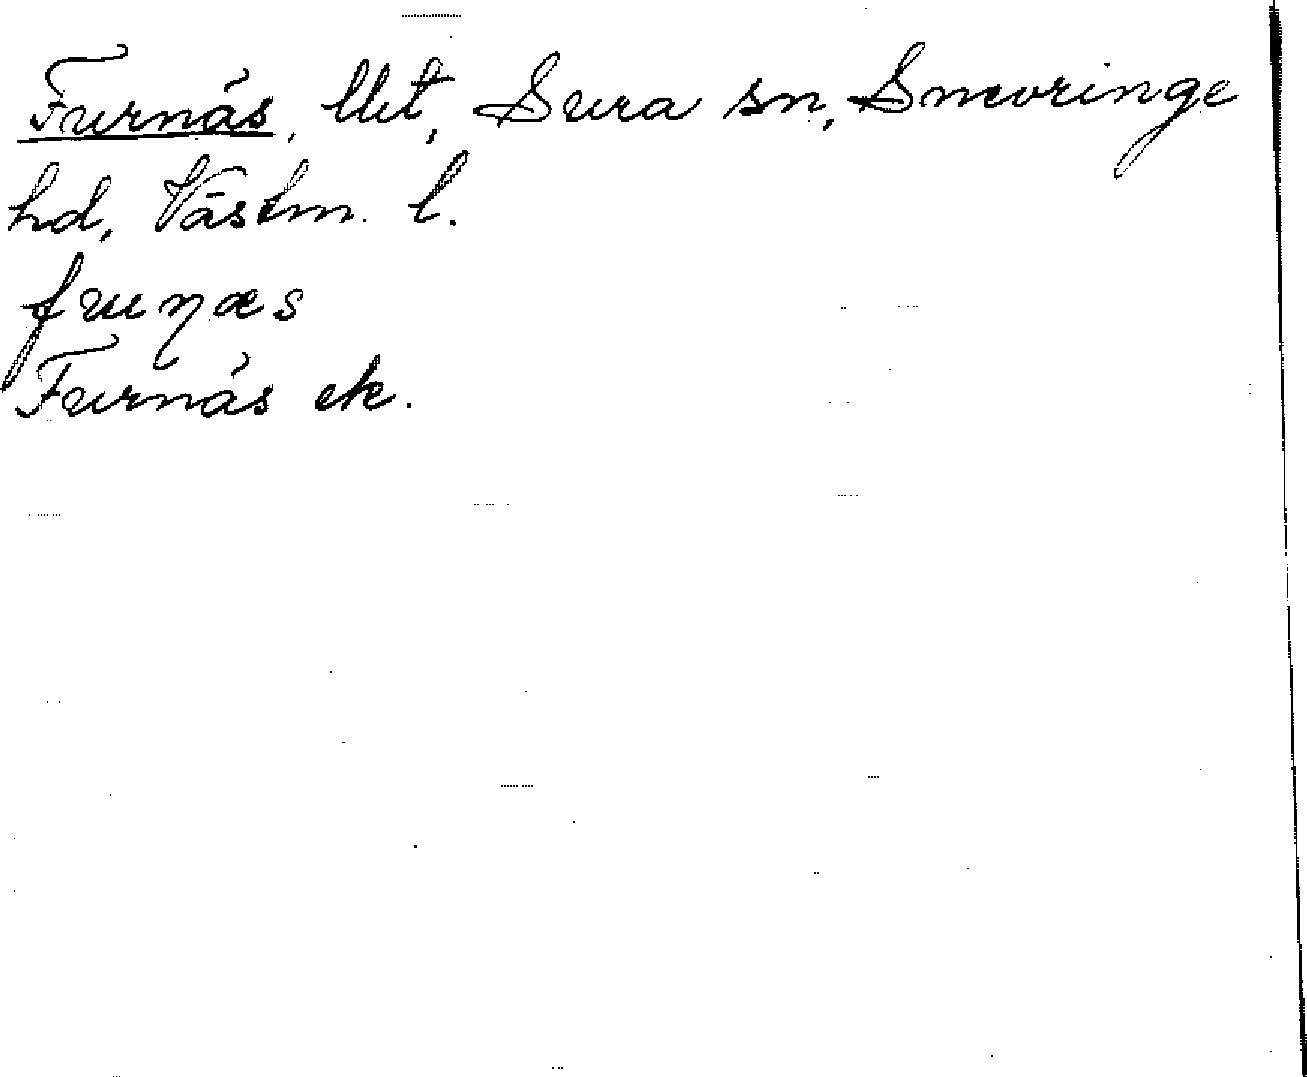 Furnäs, lht, Sura sn, Snevringe
hd, Västm. l.
Furnäs ek.